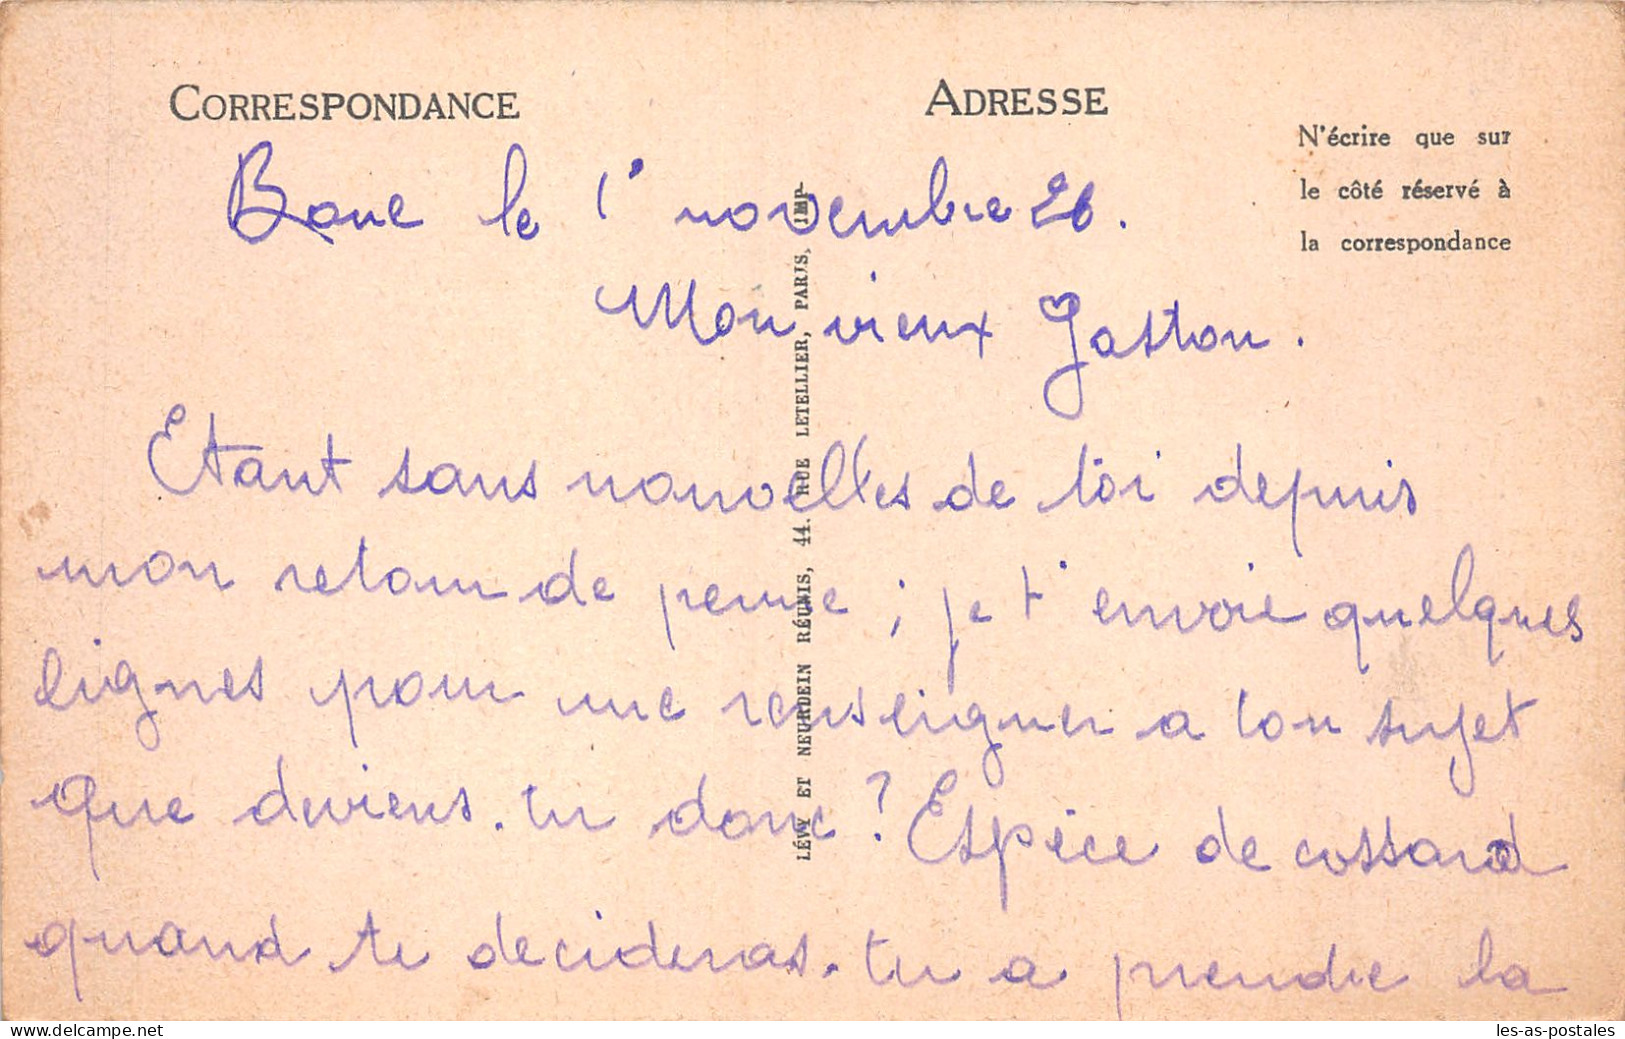 CORRESPONDANCE
ADRESSE
N'écrire que sur
le côté réservé à
la correspondance
Bone le 1r novembre 26.
Mon vieux Gaston.
Etant sans nouvelles de toi depuis
mon retour de permse ; je t'envoie quelques
lignes pour me renseigner a ton sujet
que deviens-tu donc ? Espèce de cossard
quand te decideras-tu a prendre la
LÉVY ET NEURDEIN RÉUNIS, 44. RUE LETELLIER, PARIS, IMP.
www.delcampe.net
les-as-postales